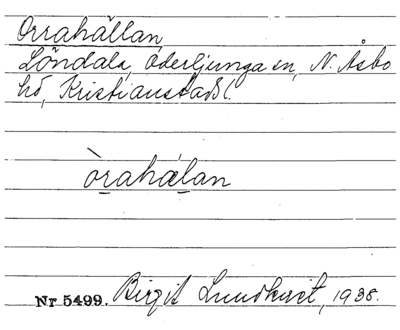 Orrahällan,
Löndala, Oderljunga sn, N. Åsbo
hd, Kristianstads l.
òrahálan
Nr 5499. Birgit Lundkvist, 1938.